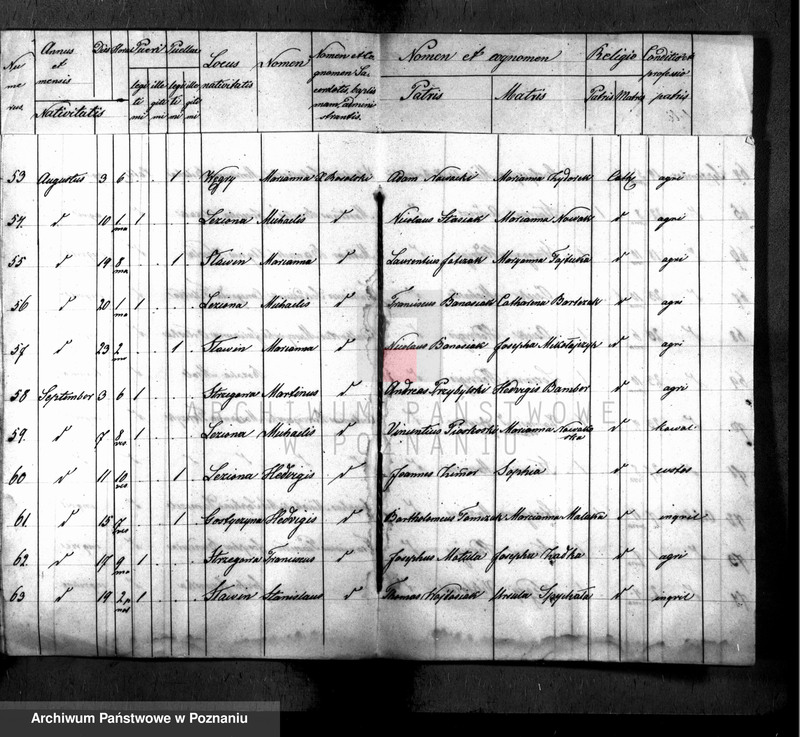 Nu me rus
Annus et mensis
Nativitatis
Dies
Hora
Pueri
legi ti mi
ille gi ti mi
Puellae
legi ti mi
ille gi ti mi
Locus nativitatis
Nomen
Nomen et Co gnomen Sa cerdotis, baptis mum admini strantis.
Nomen et cognomen
Patris
Matris
Religio
Patris
Matris
Conditio et professio patris
53 Augustus 3 6 1 Węgry Marianna Adam Marianna Cath agri
54. d 10 1 ma 1 Leziona Michaelis d Nicolaus Stasiak Marianna Nowak d agri
55 d 19 8 ma 1 Slawin Marianna d Laurentius Marianna d agri
56 d 20 1 ma 1 Leziona Michaelis d Franciscus Banasiak Catharina Bartczak d agri
57 d 23 2 1 Slawin Marianna d Nicolaus Banasiak Josepha Mikołajczyk d agri
58 September 3 6 1 Strzegova Martinus d Andreas Przybylski Hedvigis Bamber d agri
59. d 7 8 1 Leziona Michaelis d Vincentius Piorkowski Marianna d kowal
60 d 11 10 1 Leziona Hedvigis d Joannes Sophia d
61 d 15 7 1 Gostyczyna Hedvigis d Bartholomeus Tomczak Marcianna d inqvil
62 d 17 9 ma 1 Strzegova Franciscus d Josephus Matula Josepha d agri
63 d 19 2 1 Slawin Stanislaus d Thomas Wojtasiak Ursula Spychała d inqvil
ARCHIWUM PAŃSTWOWE
W POZNANIU
Archiwum Państwowe w Poznaniu